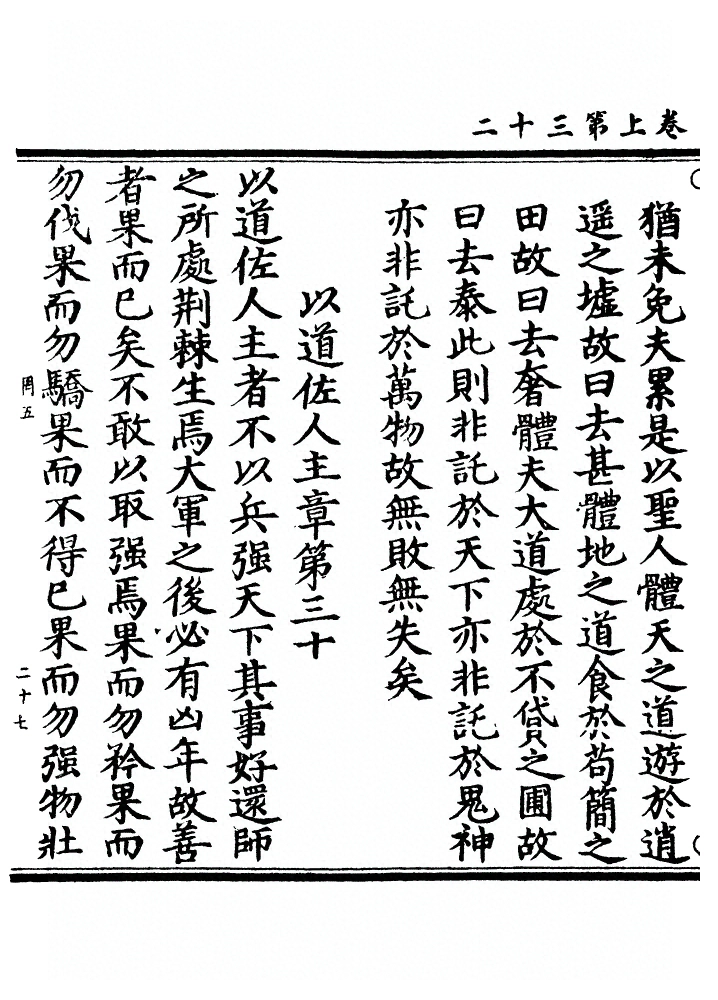 卷上第三十二
猶未免夫累是以聖人體天之道遊於逍
遥之墟故曰去甚體地之道食於苟簡之
田故曰去奢體夫大道處於不貸之圃故
曰去泰此則非託於天下亦非託於鬼神
亦非託於萬物故無敗無失矣
以道佐人主章第三十
以道佐人主者不以兵强天下其事好還師
之所處荆棘生焉大軍之後必有凶年故善
者果而已矣不敢以取强焉果而勿矜果而
勿伐果而勿驕果而不得已果而勿强物壯
罔五
二十七